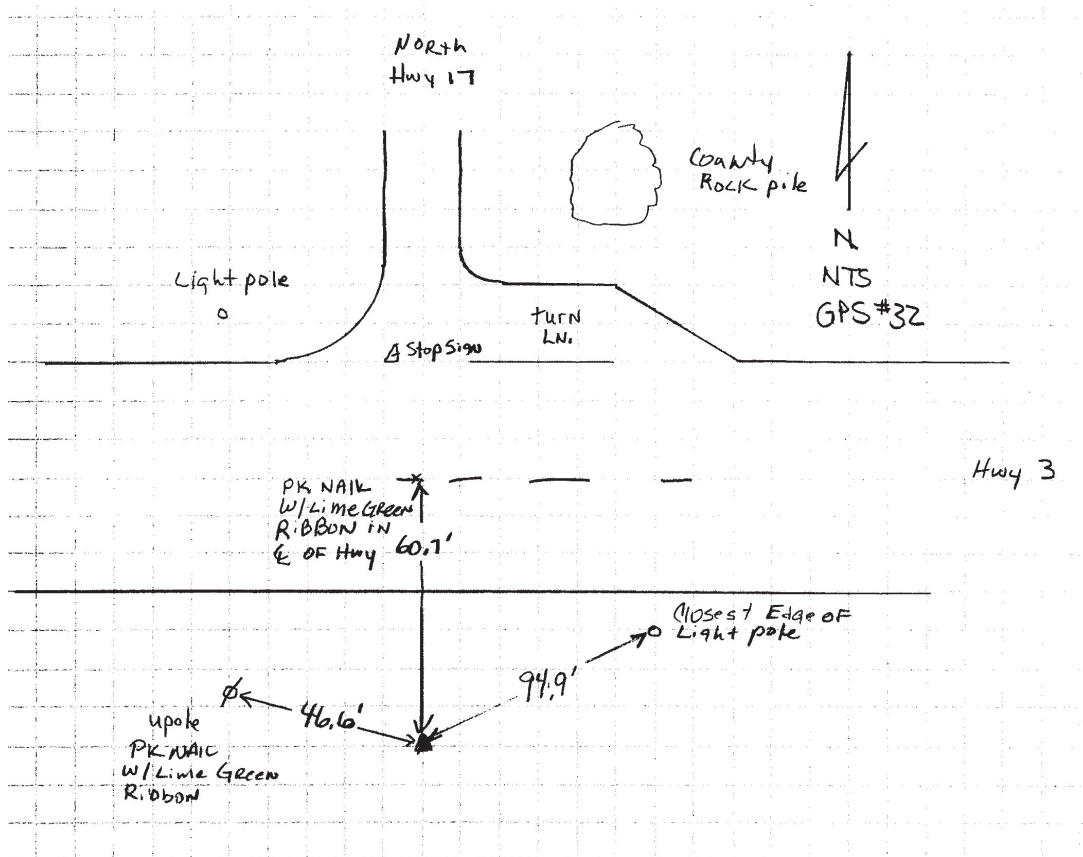 North
Hwy 17
County
Rock pile
N
NTS
GPS #32
Light pole
turn
LN.
Stop Sign
Hwy 3
PK NAIL
W/Lime Green
RiBBON iN
℄ OF Hwy
60.7'
Closest Edge of
Light pole
94.9'
46.6'
upole
PK NAIL
W/Lime Green
Ribbon